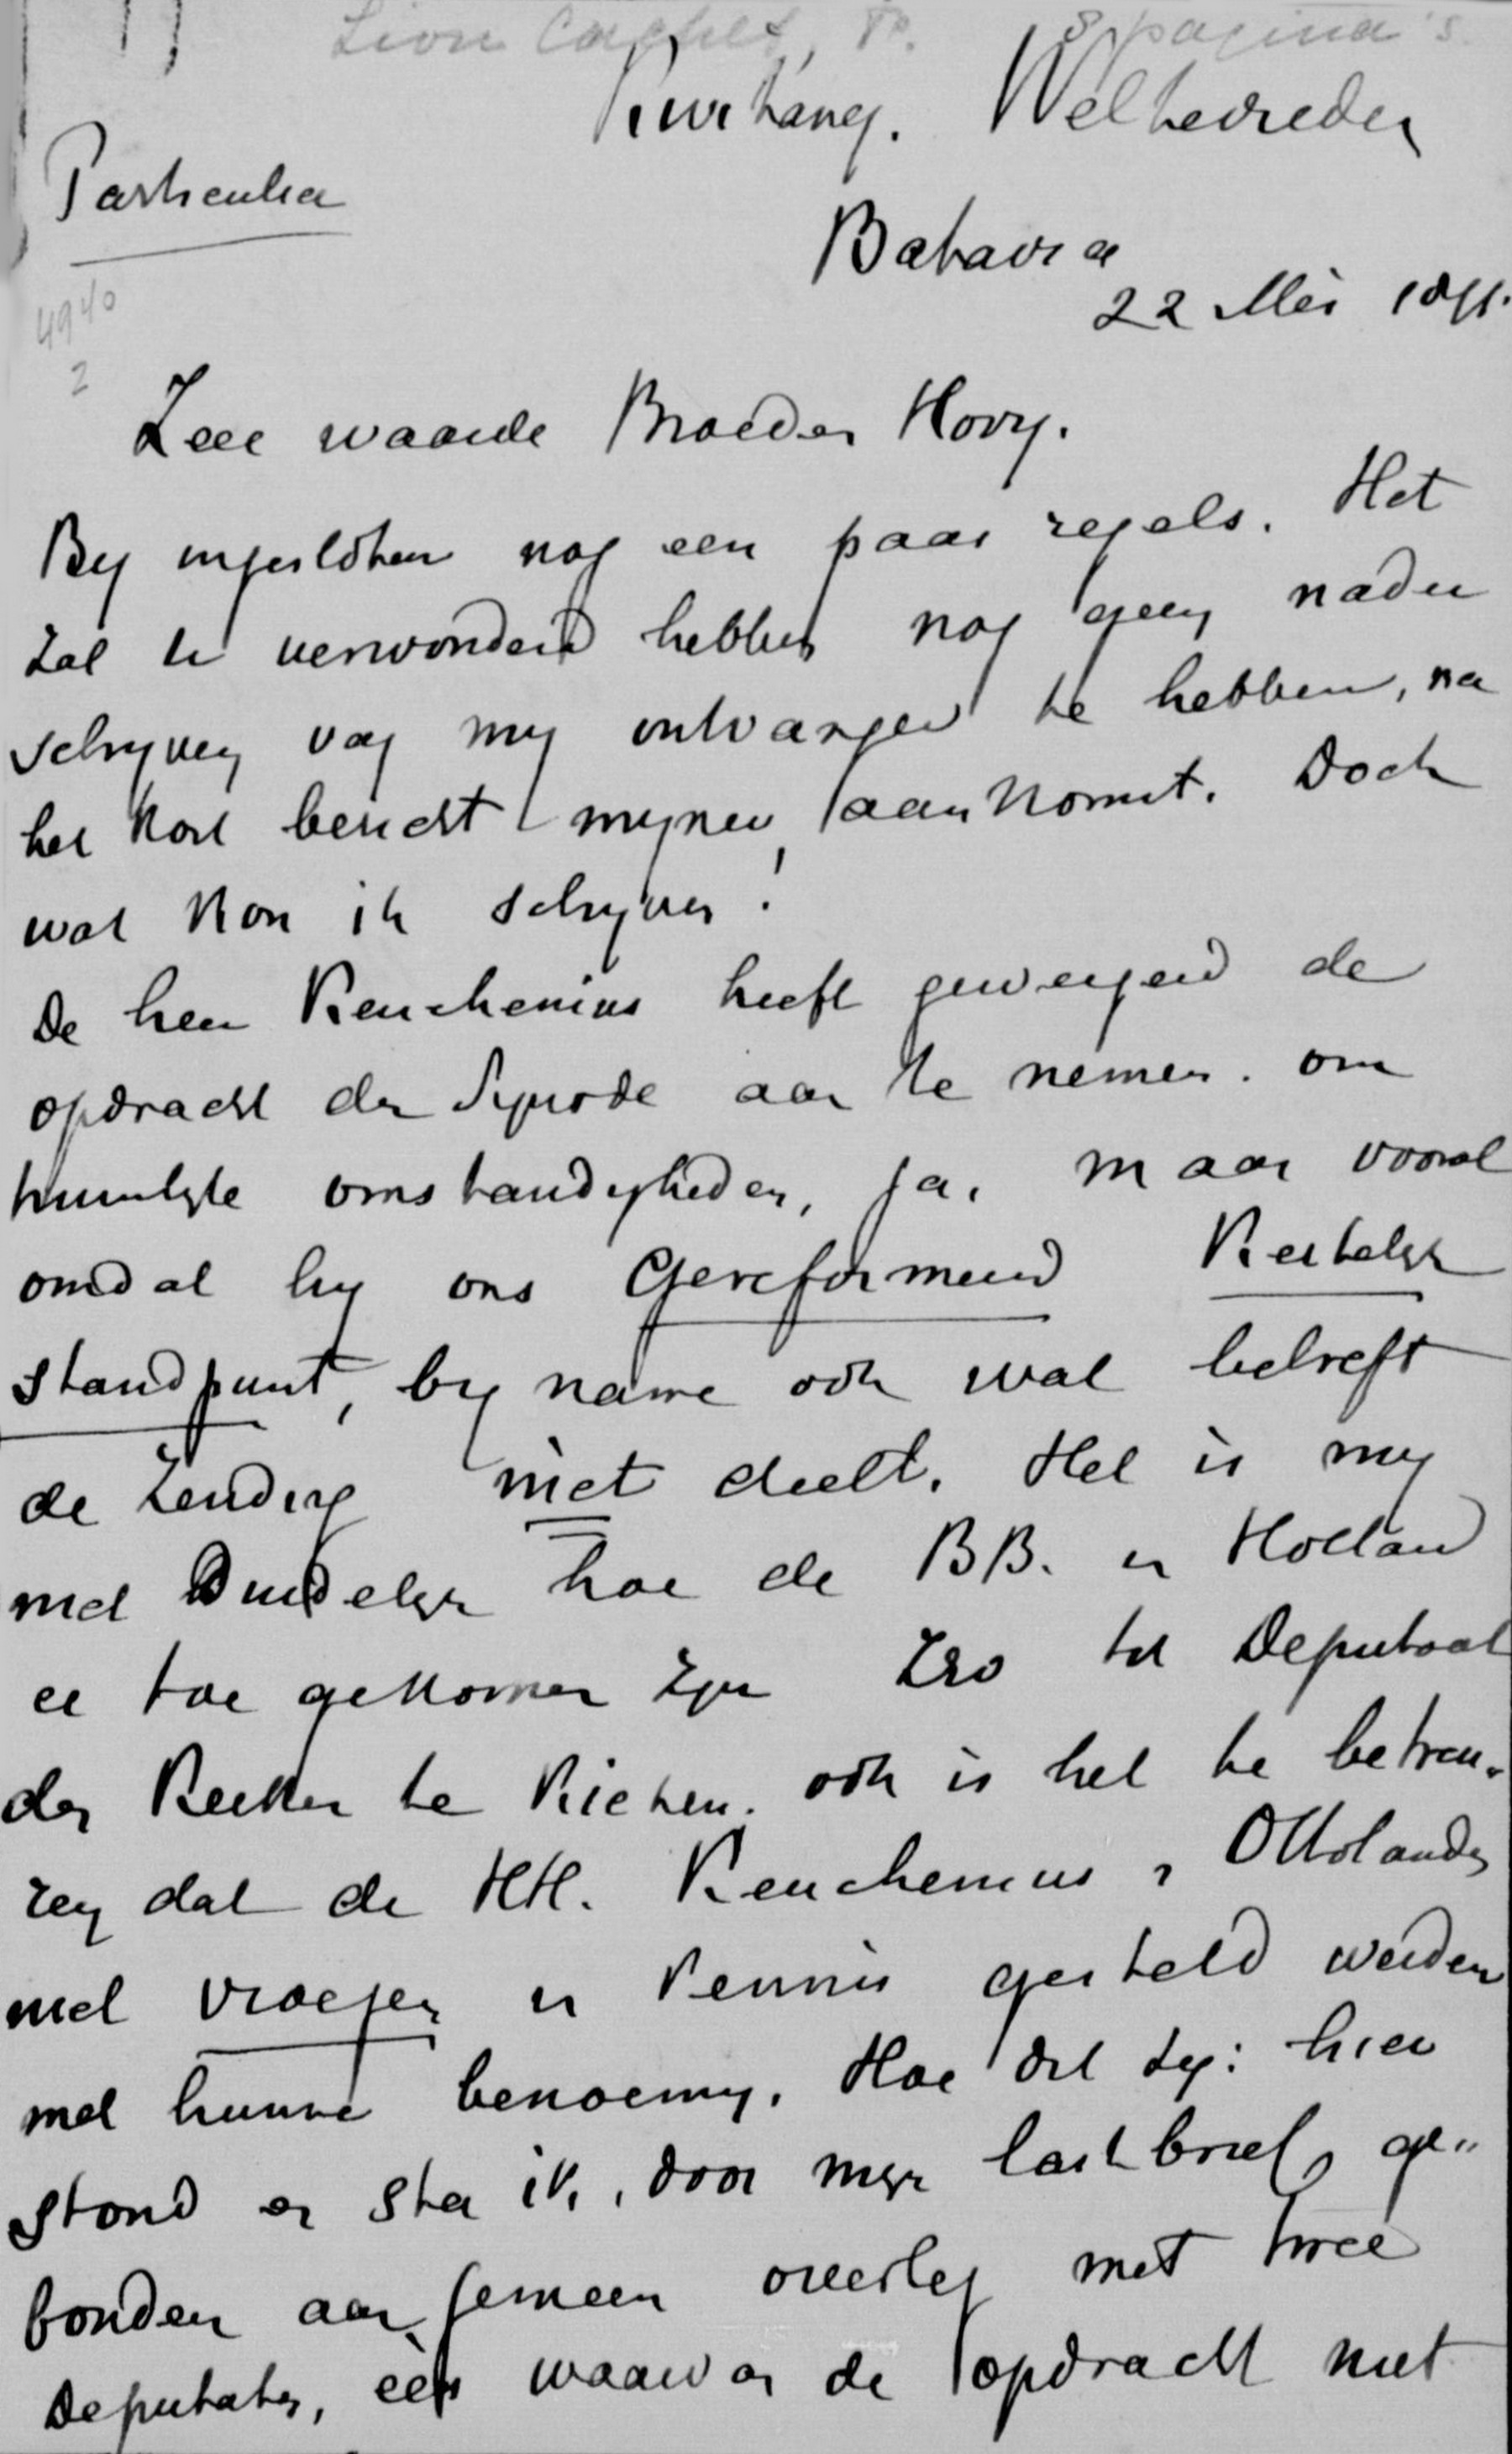 Lion Cachet, F. 8 pagina's
Kwitang. Weltevreden
Particulier
Batavia
22 Mei 1891.
4940
2
Zeer waarde Broeder Hovy.
By ingesloten nog een paar regels. Het
zal U verwonderd hebben nog geen nader
schryven van my ontvangen te hebben, na
het kort bericht mynen aankomst. Doch
wat kon ik schryven!
De heer Keuchenius heeft geweigerd de
opdracht der Synode aan te nemen. om
huiselyke omstandigheden, ja, maar vooral
omdat hy ons Gereformeerd Kerkelyk
standpunt, by name ook wat betreft
de Zending niet deelt. Het is my
niet Duidelyk hoe de BB. in Holland
er toe gekomen zyn Zoo tot Deputaat
der Kerken te kiezen. ook is het te betreu-
ren dat de HH. Keuchenius & Ottolander
niet vroeger in kennis gesteld werden
met hunne benoeming. Hoe dit zy: hier
stond en sta ik, door myn lastbrief, ge-
bonden aan gemeen overleg met twee
Deputaten, één waarvan de opdracht niet